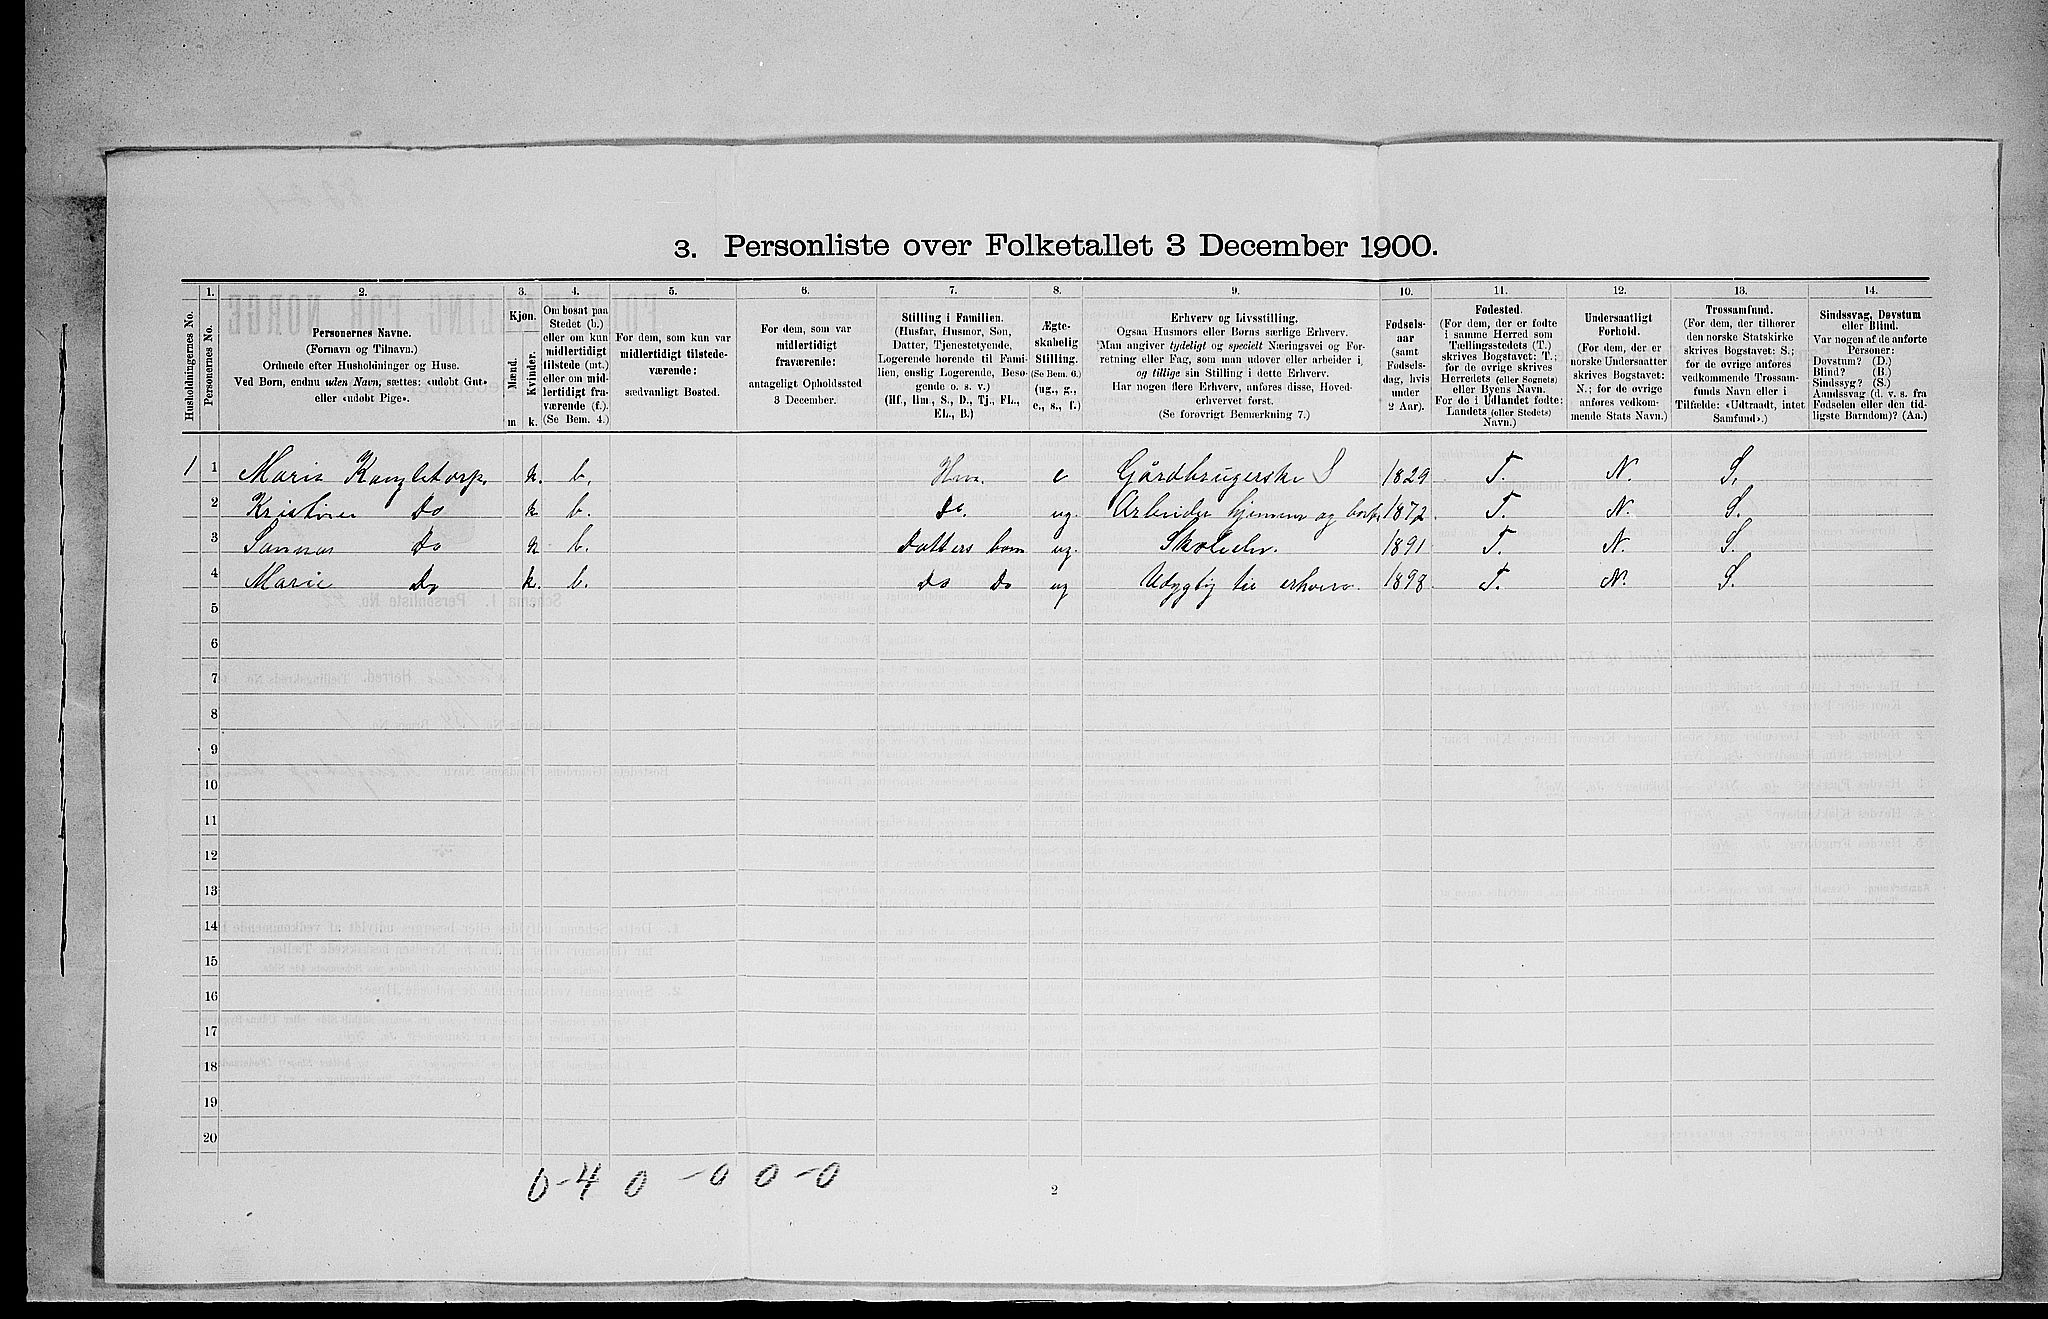 3. Personliste over Folketallet 3 December 1900.
1. 2. 3. 4. 5. 6. 7. 8. 9. 10. 11. 12. 13. 14.
Husholdningernes No.
Personernes No.
Personernes Navne.
(Fornavn og Tilnavn.)
Ordnede efter Husholdninger og Huse.
Ved Børn, endnu uden Navn, sættes: «udøbt Gut»
eller «udøbt Pige».
Kjøn.
Mænd.
Kvinder.
m k.
Om bosat paa
Stedet (b.)
eller om kun
midlertidigt
tilstede (mt.)
eller om mid-
lertidigt fra-
værende (f.)
(Se Bem. 4.)
For dem, som kun var
midlertidigt tilstede-
værende:
sædvanligt Bosted.
For dem, som var
midlertidigt
fraværende:
antageligt Opholdssted
3 December.
Stilling i Familien.
(Husfar, Husmor, Søn,
Datter, Tjenestetyende,
Logerende hørende til Fami-
lien, enslig Logerende, Besø-
gende o. s. v.)
(Hf., Hm., S., D., Tj., FL.,
EL., B.)
Ægte-
skabelig
Stilling.
(Se Bem. 6.)
(ug., g.,
e., s., f.)
Erhverv og Livsstilling.
Ogsaa Husmors eller Børns særlige Erhverv.
Man angiver tydeligt og specielt Næringsvei og For-
retning eller Fag, som man udøver eller arbeider i,
og tillige sin Stilling i dette Erhverv.
Har nogen flere Erhverv, anføres disse, Hoved-
erhvervet først.
(Se forøvrigt Bemærkning 7.)
Fødsels-
aar
(samt
Fødsels-
dag, hvis
under
2 Aar).
Fødested.
(For dem, der er fødte
i samme Herred som
Tællingsstedets (T.)
skrives Bogstavet: T.;
for de øvrige skrives
Herredets (eller Sognets)
eller Byens Navn.
For de i Udlandet fødte:
Landets (eller Stedets)
Navn.)
Undersaatligt
Forhold.
(For dem, der er
norske Undersaatter
skrives Bogstavet:
N.; for de øvrige
anføres vedkom-
mende Stats Navn.)
Trossamfund.
(For dem, der tilhører
den norske Statskirke
skrives Bogstavet: S.;
for de øvrige anføres
vedkommende Trossam-
funds Navn eller i
Tilfælde: «Udtraadt, intet
Samfund».)
Sindssvag, Døvstum
eller Blind.
Var nogen af de anførte
Personer:
Døvstum? (D.)
Blind? (B.)
Sindssyg? (S.)
Aandssvag (d. v. s. fra
Fødselen eller den tid-
ligste Barndom)? (Aa.)
1 1 k. b. Hm. e Gårdbrugerske S 1829 T. N. S.
2 Do k b. Do. ug. Arbeider hjemme og 1872. T. N. S.
3 Do k b. Datters barn ug. Skoleelev. 1891 T. N. S.
4 Marie Do k. b. Do Do ug Udygtig til erhverv. 1898. T. N. S.
5
6
7
8
9
10
11
12
13
14
15
16
17
18
19
20
0-4 0 -0 0 -0
2